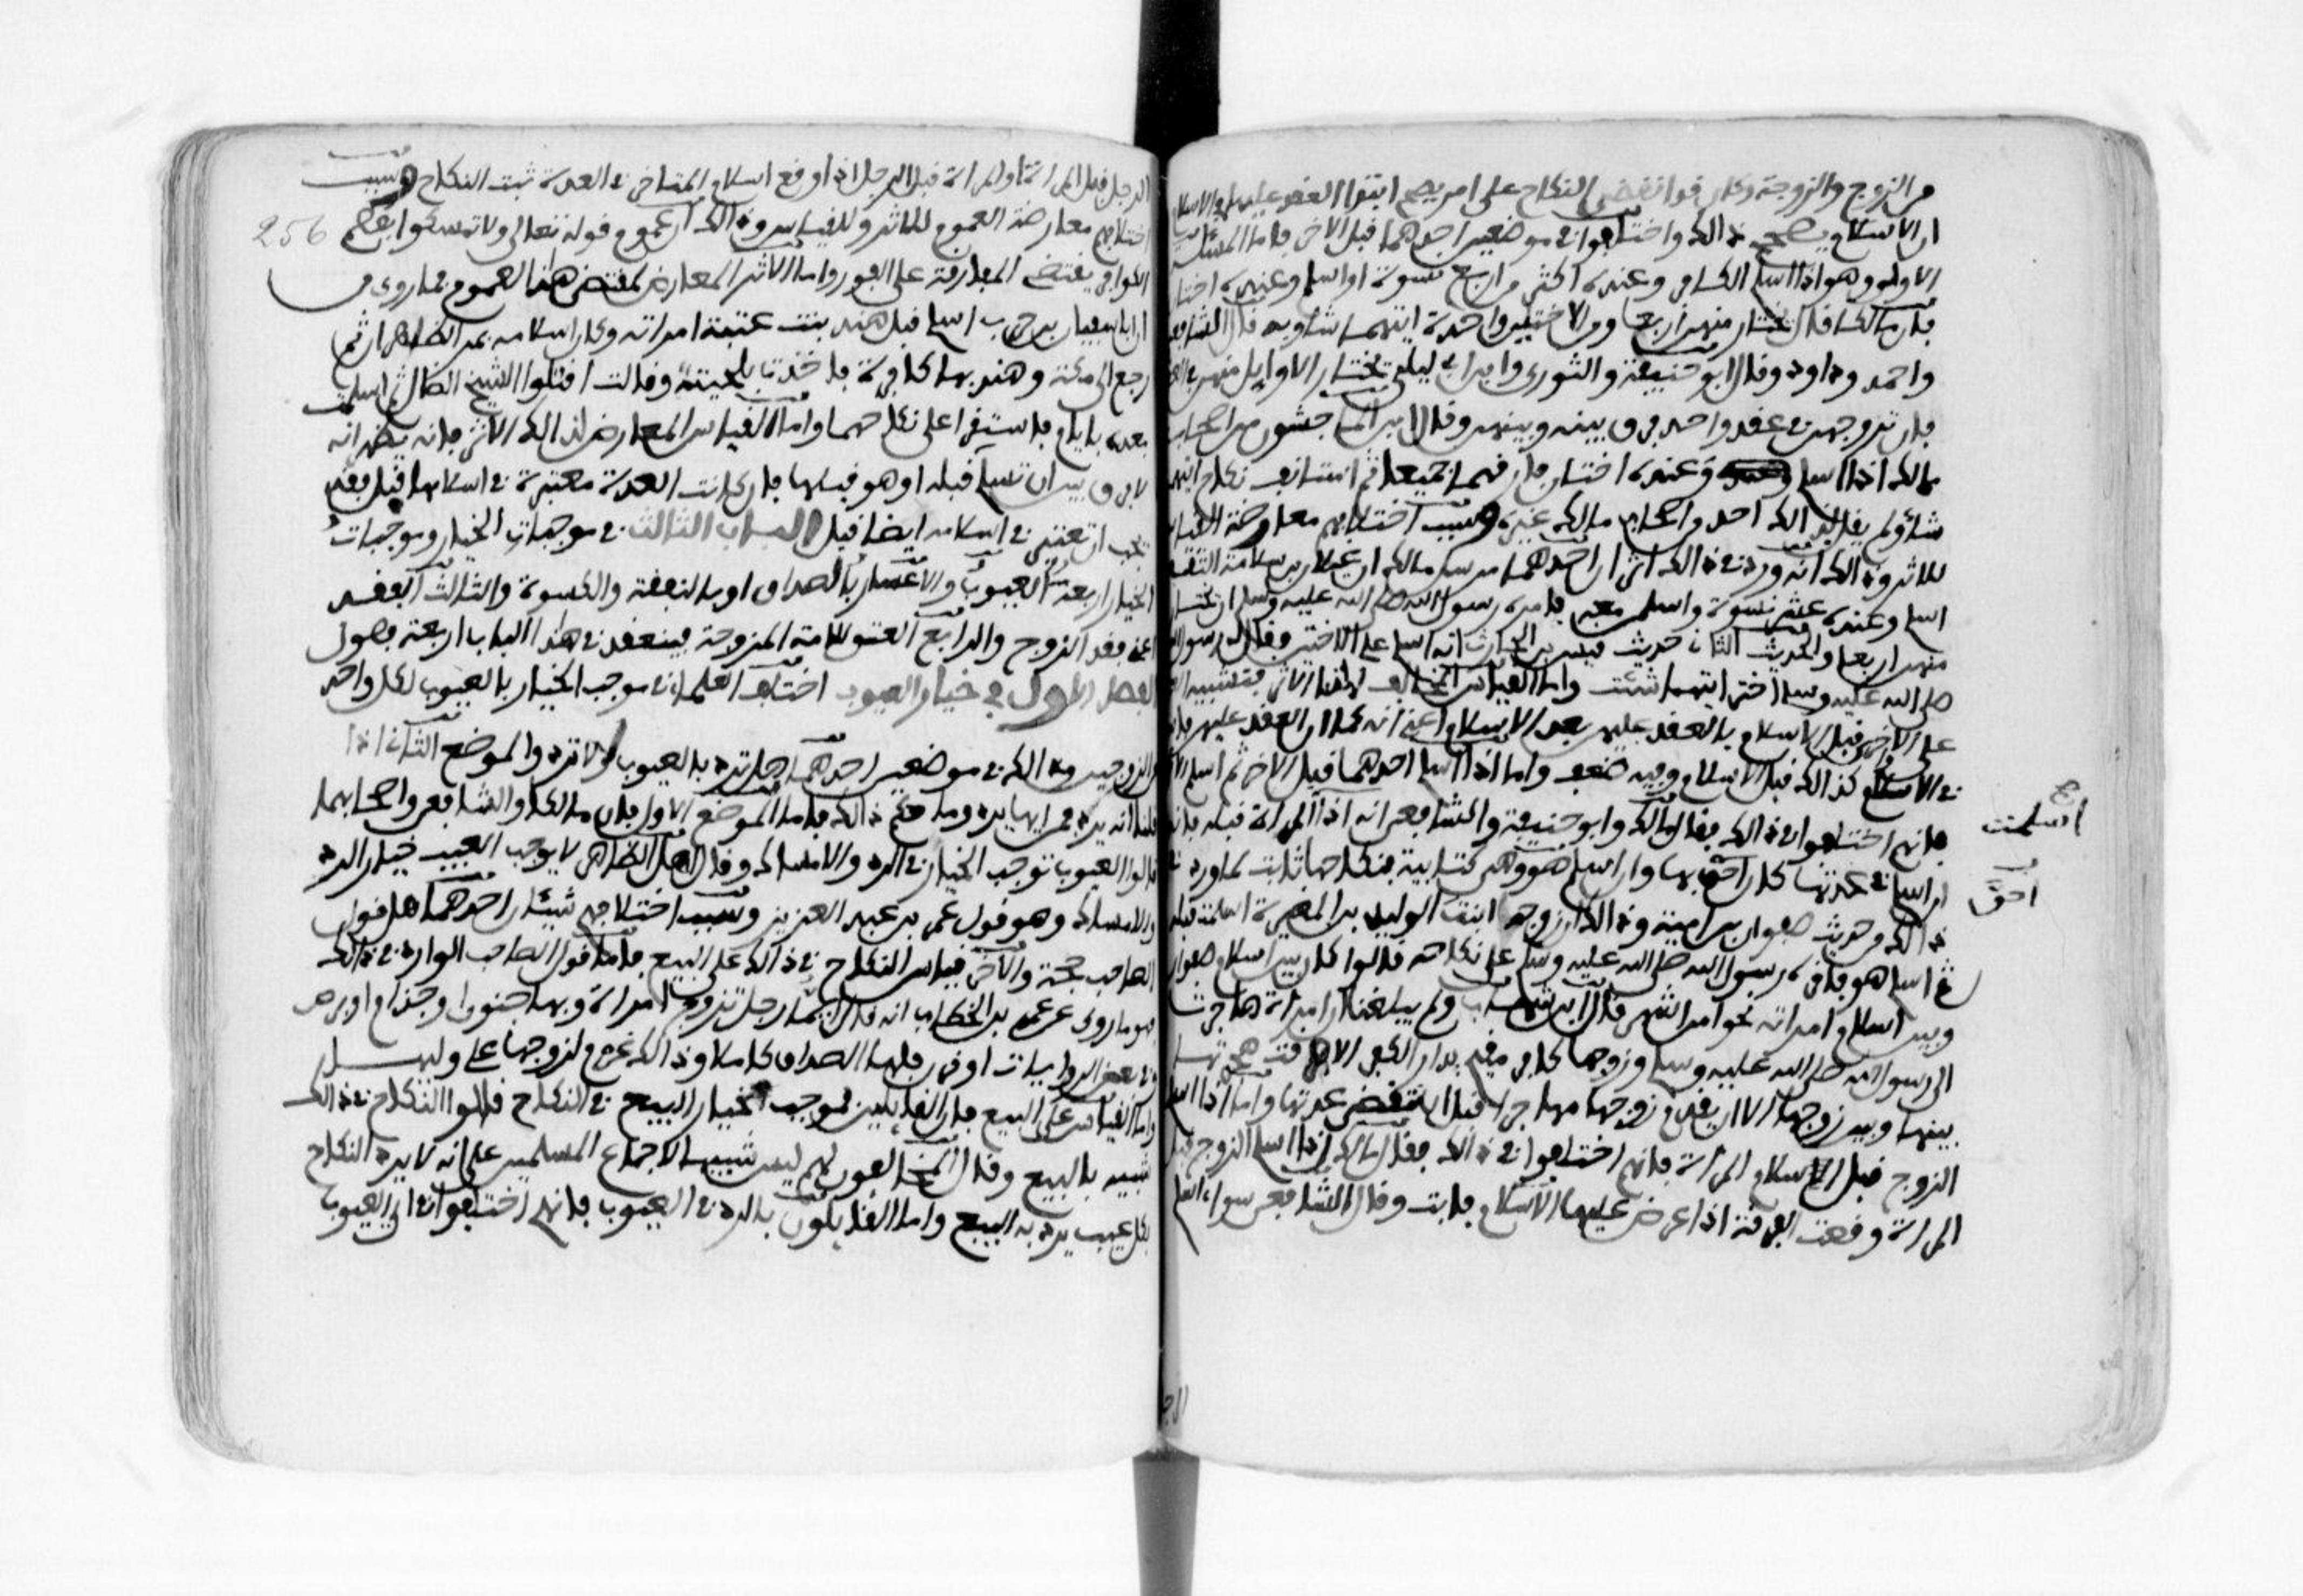 من الزوج والزوجة وكان قد انقضى النكاح على من يصح ابتداء العقد عليها في الاسلام
ان الاسلام يصحح ذالك واختلفوا في موضعين احدهما قبل الاخر فاما المسئلة
الاولى وهو اذا اسلم الكافر وعنده اكثر من اربع نسوة او اسلم وعنده اختان
فان مالكا قال يختار منهن اربعا ومن الاختين واحدة ايتهما شاء وبه قال الشافعي
واحمد وداود وقال ابو حنيفة والثوري وابن ابي ليلى يختار الاوايل منهن في العقد
فان تزوجهن في عقد واحد فرق بينه وبينهن وقال ابن الماجشون من اصحاب
مالك اذا اسلم وعنده اختان فارقهما جميعا ثم استانف نكاح ايتهما
شاء ولم يقل بذالك احد من اصحاب مالك غيره وسبب اختلافهم معارضة القياس
للاثر وذالك انه ورد في ذالك اثران احدهما مرسل مالك ان غيلان بن سلامة الثقفي
اسلم وعنده عشر نسوة واسلمن معه فامره رسول الله صلى الله عليه وسلم ان يختار
منهن اربعا والحديث الثاني حديث قيس بن الحارث انه اسلم على الاختين فقال له رسول الله
صلى الله عليه وسلم اختر ايتهما شئت واما القياس المخالف لهذا الاثر فتشبيه العقد
على الاواخر قبل الاسلام بالعقد عليهن بعد الاسلام اعني انه كما ان العقد عليهن فاسد
في الاسلام كذالك قبل الاسلام وفيه ضعف واما اذا اسلم احدهما قبل الاخر ثم اسلم الاخر
فانهم اختلفوا في ذالك فقال مالك وابو حنيفة والشافعي انه اذا المراة قبله فانه
اسلمت
ان اسلم في عدتها كان احق بها وان اسلم هو وهي كتابية فنكاحها ثابت لما ورد في
احق
ذالك من حديث صفوان بن امية وذالك ان زوجه ابنت الوليد بن المغيرة اسلمت قبله
ثم اسلم هو فاقره رسول الله صلى الله عليه وسلم على نكاحه قالوا كان بين اسلام صفوان
وبين اسلام امراته نحو من الشهر قال ابن شهاب ولم يبلغنا ان امراة هاجرت
الى رسول الله صلى الله عليه وسلم وزوجها كافر مقيم بدار الكفر الا فرقت هجرتها
بينها وبين زوجها الا ان يقدم زوجها مهاجرا قبل ان تنقضي عدتها واما اذا اسلم
الزوج قبل اسلام المراة فانهم اختلفوا في ذالك فقال مالك اذا اسلم الزوج قبل
المراة وقعت الفرقة اذا عرض عليها الاسلام فابت وقال الشافعي سواء اسلم
256
الرجل قبل المراة او المراة قبل الرجل اذا وقع اسلام المتاخر في العدة ثبت النكاح وسبب
اختلافهم معارضة العموم للاثر وللقياس وذالك ان عموم قوله تعالى ولا تمسكوا بعصم
الكوافر يقتضي المفارقة على الفور واما الاثر المعارض لمقتضى هذا العموم فما روي من
ان ابا سفيان بن حرب اسلم قبل هند بنت عتبة امراته وكان اسلامه بمر الظاهران ثم
رجع الى مكة وهند بها كافرة فاخذت بلحيته وقالت اقتلوا الشيخ الضال ثم اسلمت
بعده بايام فاستقرا على نكاحهما واما القياس المعارض لذالك الاثر فانه يظهر انه
لا فرق بين ان تسلم قبله او هو قبلها فان كانت العدة معتبرة في اسلامها قبل فقد
يجب ان تعتبر في اسلامه ايضا قبل الباب الثالث في موجبات الخيار وموجبات
الخيار اربعة العيوب والاعسار بالصداق او بالنفقة والكسوة والثالث الفقد
اعني فقد الزوج والرابع العتق للامة المزوجة فينعقد في هذا الباب اربعة فصول
الفصل الاول في خيار العيوب اختلف العلماء في موجب الخيار بالعيوب لكل واحد
من الزوجين وذالك في موضعين احدهما هل ترد بالعيوب او لا ترد والموضع الثاني اذا
قلنا انه يرد فمن ايها يرد وما حكم ذالك فاما الموضع الاول فان مالكا والشافعي واصحابهما
قالوا العيوب توجب الخيار في الرد والامساك وقال اهل الظاهر لا يوجب العيب خيار الرد
والامساك وهو قول عمر بن عبد العزيز وسبب اختلافهم شيئان احدهما هل قول
الصاحب حجة والاخر قياس النكاح في ذالك على البيع فاما قول الصاحب الوارد في ذالك
فهو ما روي عن عمر بن الخطاب انه قال ايما رجل تزوج امراة وبها جنون او جذام او برص
وفي بعض الروايات او قرن فلها الصداق كاملا وذالك غرم لزوجها على وليها
واما القياس على البيع فان القايلين بموجب الخيار للبيع في النكاح قالوا النكاح في ذالك
شبيه بالبيع وقال المخالفون لهم ليس شبيها لاجماع المسلمين على انه لا يرد النكاح
بكل عيب يرد به البيع واما القايلون بالرد في العيوب فانهم اختلفوا في اي العيوب